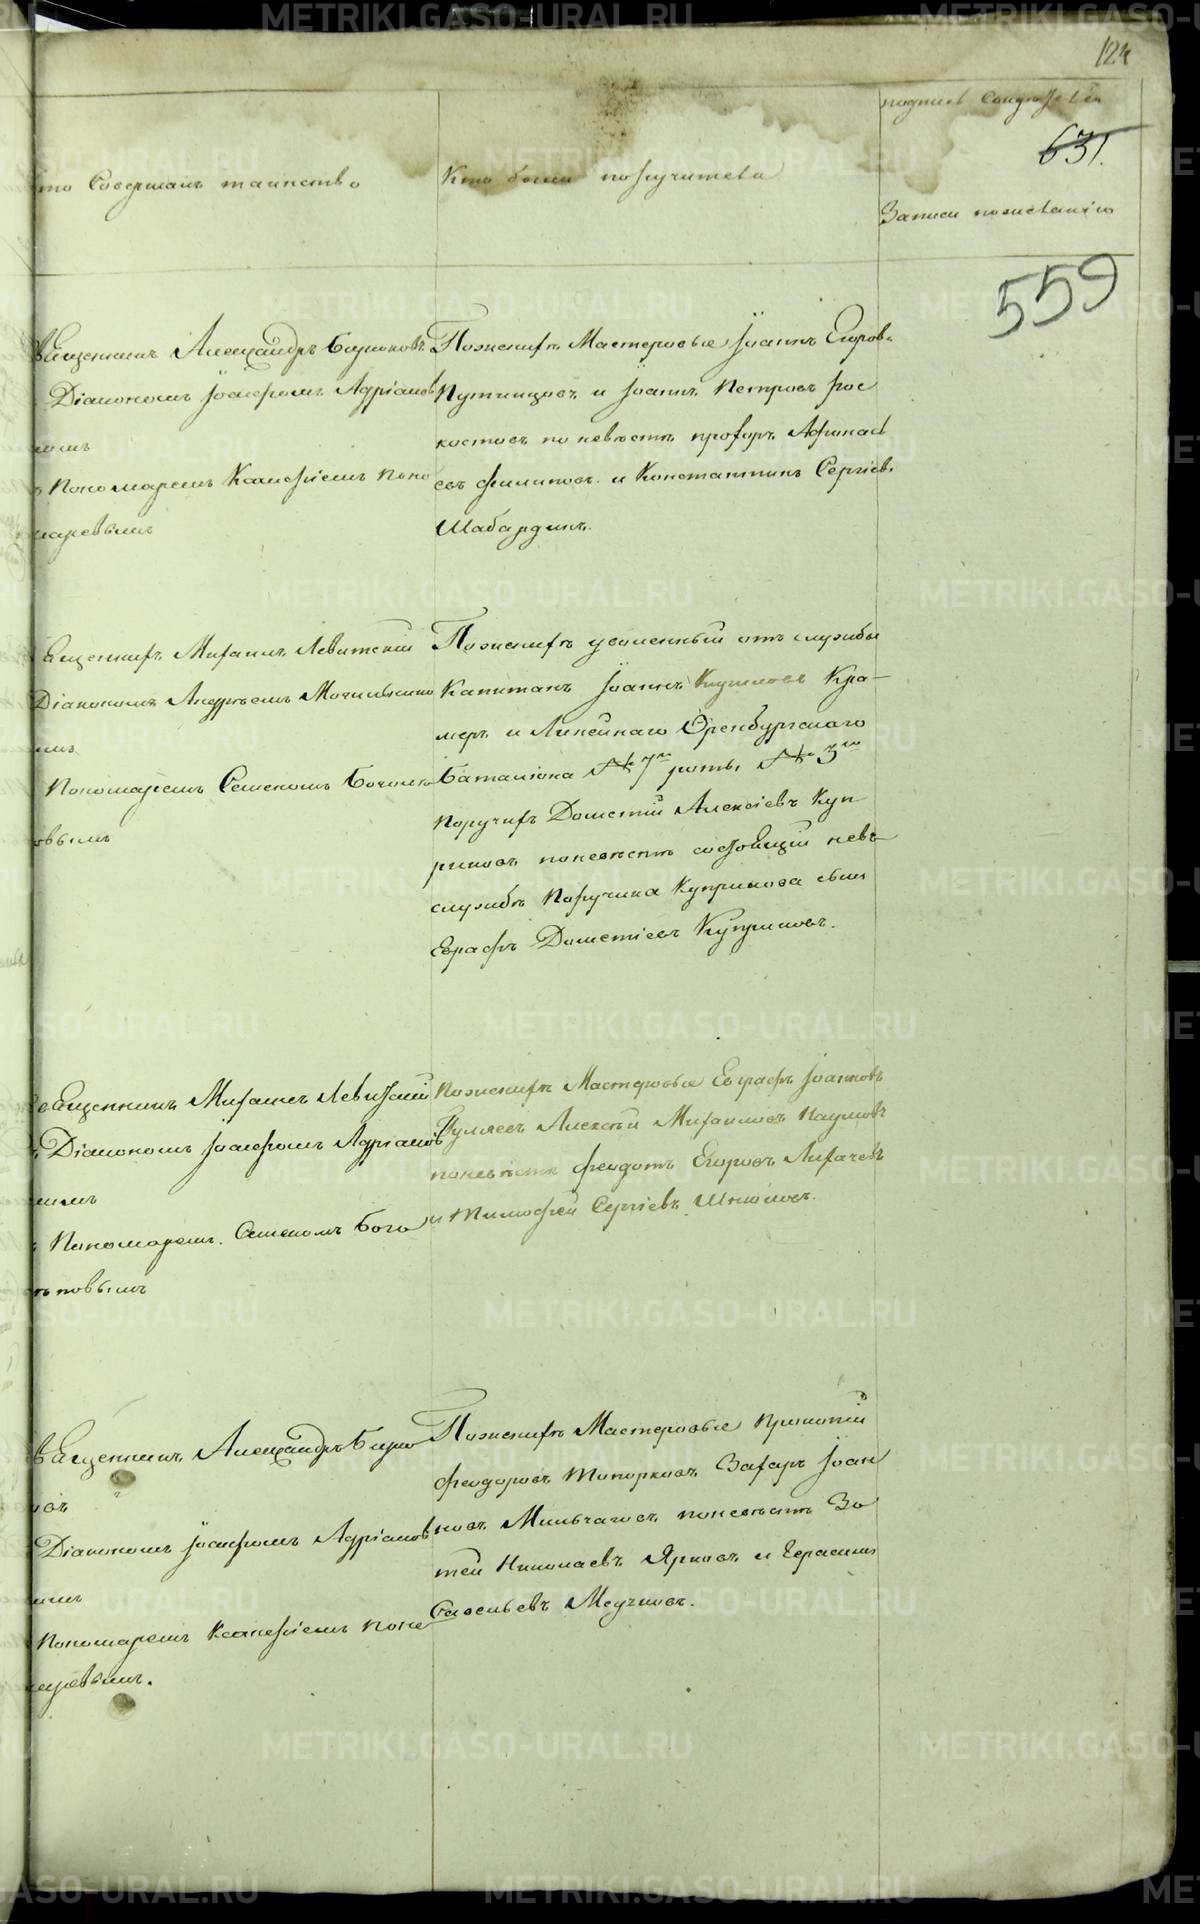 124
подпись
631.
кто Совершалъ таинство
Кто были поручители
Записи по желанію
559
Священникъ Александръ Бирюковъ
Діакономъ Іоасафомъ Адріанов
нымъ
Пономаремъ Ксанѳіемъ Поно
маревымъ
По женихѣ Мастеровые Іоаннъ Егоровъ
Путинцовъ и Іоаннъ Петровъ
по невѣстѣ Афинас
евъ Филиповъ и Константинъ Сергіевъ
Шабардинъ.
Священникъ Михаилъ Левитскій
Діакономъ Андреемъ
Пономаремъ Семеномъ
овымъ
По женихѣ уволенный отъ службы
Капитанъ Іоаннъ Кра-
меръ и Линейнаго Оренбургскаго
Баталіона № 7го роты № 3го
Поручикъ Дометій Алексіевъ Куп
риковъ по невѣстѣ состоящій не въ
службѣ Поручика Куприкова сынъ
Евграфъ Дометіевъ Куприковъ.
Священникъ Михаилъ Левитскій
Діакономъ Іоасафомъ Адріанов
нымъ
Пономаремъ Семеномъ Бого
повымъ
По женихѣ Мастеровые Евграфъ Іоанновъ
Алексѣй Михаиловъ Наумовъ
по невѣстѣ Феодотъ Егоровъ Лихачевъ
и Тимофей Сергіевъ
Священникъ Александръ Бирю
ковъ
Діакономъ Іоасафомъ Адріанов
нымъ
Пономаремъ Ксанѳіемъ Поно
маревымъ.
По женихѣ Мастеровые Прокопій
Феодоровъ Топорковъ Захаръ Іоан
новъ Мильчаговъ по невѣстѣ Зо
тей Николаевъ Ярковъ и Герасимъ
Савельевъ
METRIKI.GASO-URAL.RU